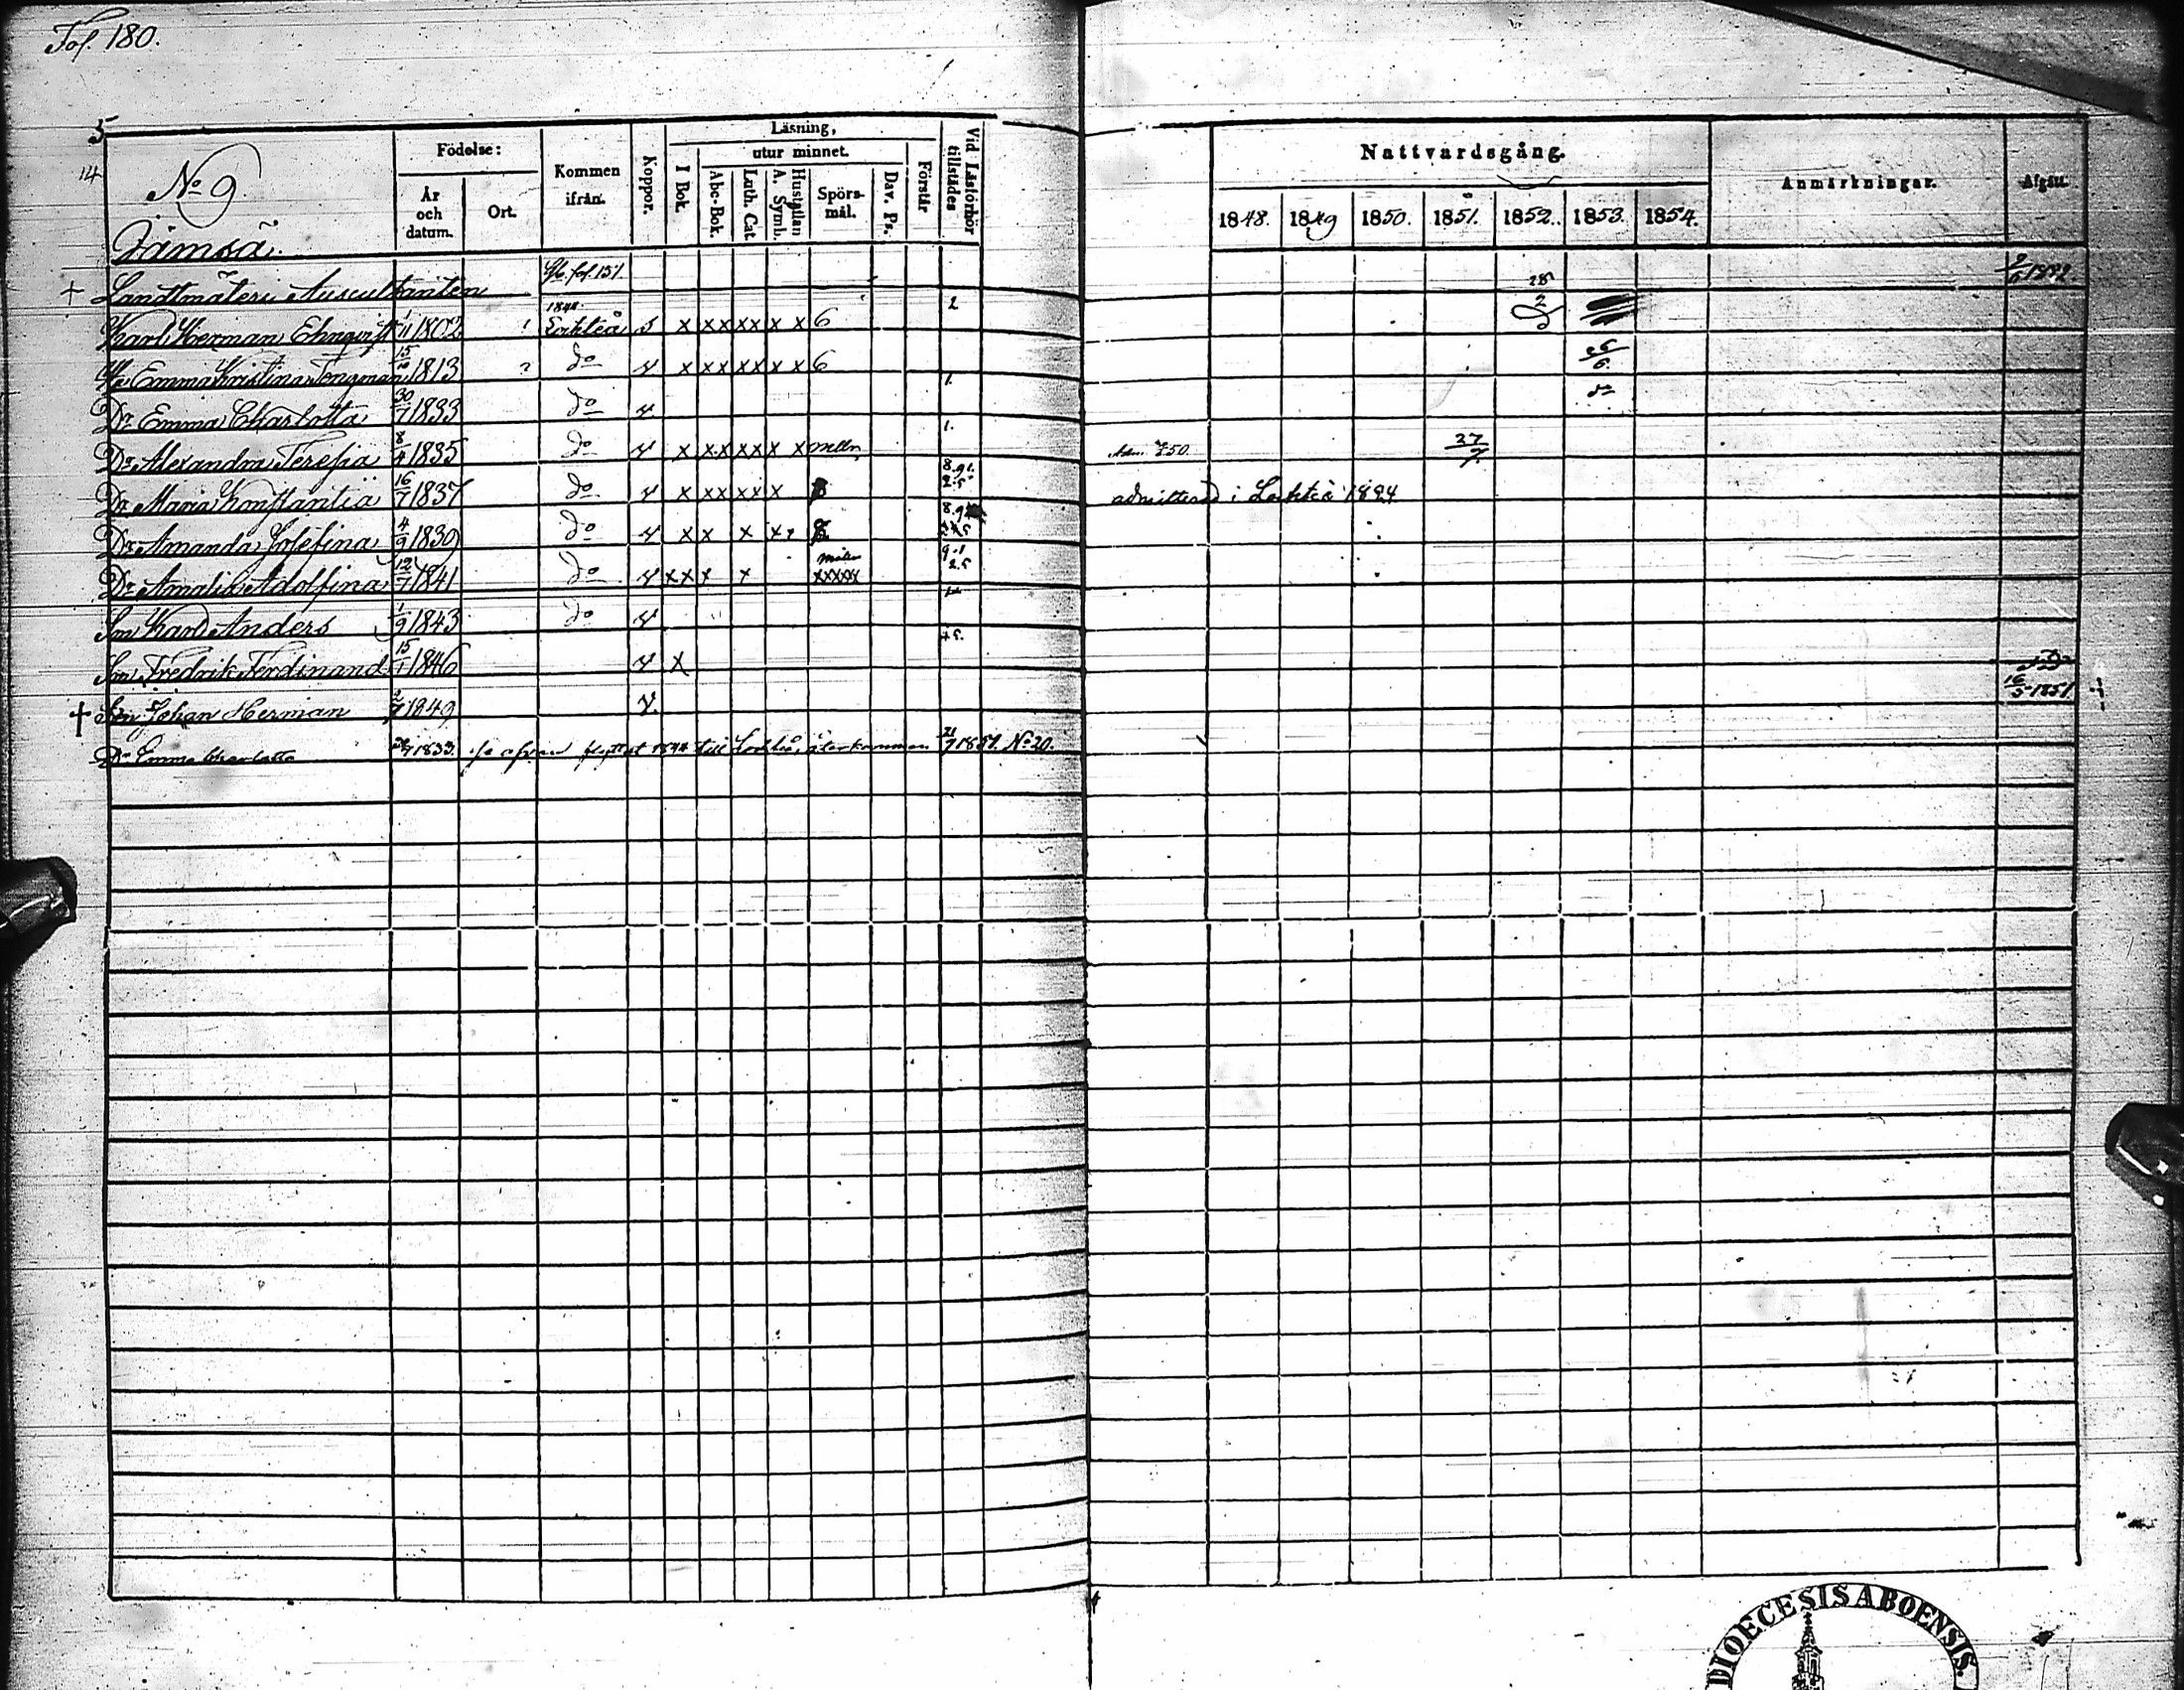 Fol. 180.
5
14
No 9.
Jämsä.
Födelse:
År och datum.
Ort.
Kommen ifrån.
Koppor.
Läsning,
utur minnet.
I Bok.
Abc-Bok.
Luth. Cat.
A. Symb. Hustaflan
Spörsmål.
Dav. Ps.
Förstår
Vid Läsförhör tillstädes
Nattvardsgång.
1848. 1849 1850. 1851. 1852. 1853. 1854.
Anmärkningar.
Afgått.
+ Landtmäteri Auscultanten fol. 151.
Karl Herman Ehnqvist 1/11 1802 1848 x xx xx x x 6 2 28 2
Emma Kristina Tengman 15/10 1813 do v x xx xx x x 6 26/6
Dr Emma Charlotta 30/7 1833 do v 1. do
Dr Alexandra Teresia 8/4 1835 do v x xx xx x x 1. Adm. 50. 27/7
Dr Maria Konstantia 16/7 1837 do v x xx xx x 8.91. 2.5 admitterad i
Dr Amanda Josefina 4/9 1839 do v x x x x 8.9
Dr Amalia Adolfina 12/7 1841 do v x x x x xxxxx 9.1 2.5
Son Karl Anders 1/9 1843 do v
Son Fredrik Ferdinand 15/1 1846 v x
† Son Johan Herman 1849 v. 16/5 1851 +
Dr Emma Charlotta 30/7 1833. flyttat till återkommen 21/7 1851. No 20.
DIOECESIS ABOENSIS.